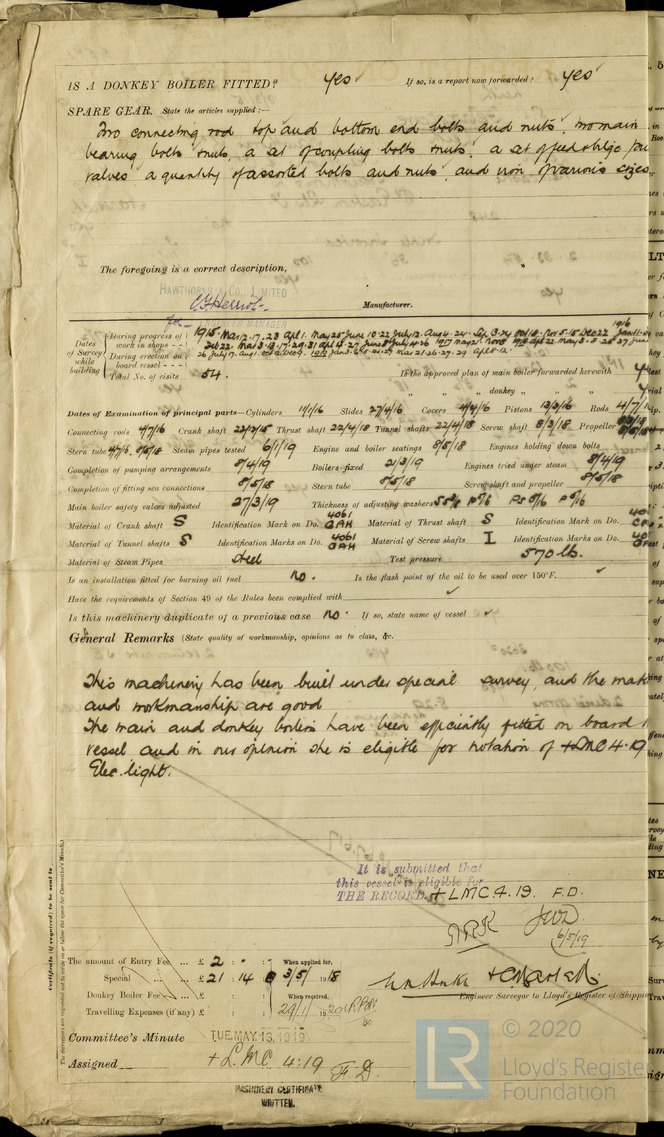 IS A DONKEY BOILER FITTED? yes If so, is a report now forwarded? yes
SPARE GEAR. State the articles supplied:—
Two connecting rod top and bottom end bolts and nuts, two main
bearing bolts & nuts, a set of coupling bolts & nuts, a set of feed & bilge
valves a quantity of assorted bolts and nuts and iron of various sizes
The foregoing is a correct description,
HAWTHORNS & CO. LIMITED
Manufacturer.
Dates of Survey while building
During progress of work in shops - - 1915 Mar 12. 17. 23 Apl 1. May 25 June 10. 22 July 12. Aug 4. 24. Sep 3. 24 Oct 18. Nov 5. 15 Dec 22 1916
During erection on board vessel - - -
Total No. of visits 54.
Is the approved plan of main boiler forwarded herewith
" " " donkey " "
Dates of Examination of principal parts—Cylinders 11/1/16 Slides 27/4/16 Covers 4/4/16 Pistons 13/3/16 Rods 4/7/1
Connecting rods 4/7/16 Crank shaft 22/3/15 Thrust shaft 22/4/18 Tunnel shafts 22/4/18 Screw shaft 8/3/18 Propeller
Stern tube 4/7/16. 8/5/18 Steam pipes tested 6/1/19 Engine and boiler seatings 8/5/18 Engines holding down bolts
Completion of pumping arrangements 8/4/19 Boilers fixed 21/3/19 Engines tried under steam 8/4/19
Completion of fitting sea connections 8/5/18 Stern tube 8/5/18 Screw shaft and propeller 8/5/18
Main boiler safety valves adjusted 27/3/19 Thickness of adjusting washers
Material of Crank shaft S Identification Mark on Do. 4061 GAH Material of Thrust shaft S Identification Mark on Do.
Material of Tunnel shafts S Identification Marks on Do. 4061 GAH Material of Screw shafts I Identification Marks on Do.
Material of Steam Pipes Steel Test pressure 570 lb.
Is an installation fitted for burning oil fuel no. Is the flash point of the oil to be used over 150°F. ✓
Have the requirements of Section 49 of the Rules been complied with ✓
Is this machinery duplicate of a previous case no. If so, state name of vessel ✓
General Remarks (State quality of workmanship, opinions as to class, &c.
This machinery has been built under special survey, and the mat
and workmanship are good
The main and donkey boilers have been efficiently fitted on board
vessel and in our opinion she is eligible for notation of +LMC 4.19
Elec. light.
It is submitted that
this vessel is eligible for
THE RECORD. + LMC. 4. 19. F.D.
JWD.
6/5/19
Certificate (if required) to be sent to
The Surveyors are requested not to write on or below the space for Committee's Minute.
The amount of Entry Fee ... £ 2 : - : When applied for,
Special ... £ 21 : 14 : 0 3/5/1918
Donkey Boiler Fee ... £ : : When received,
Travelling Expenses (if any) £ : :
Engineer Surveyor to Lloyd's Register of Shipping
Committee's Minute TUE. MAY. 13. 1919
Assigned + L.M.C. 4:19 F.D.
MACHINERY CERTIFICATE
WRITTEN.
LR © 2020
Lloyd's Registe
Foundation